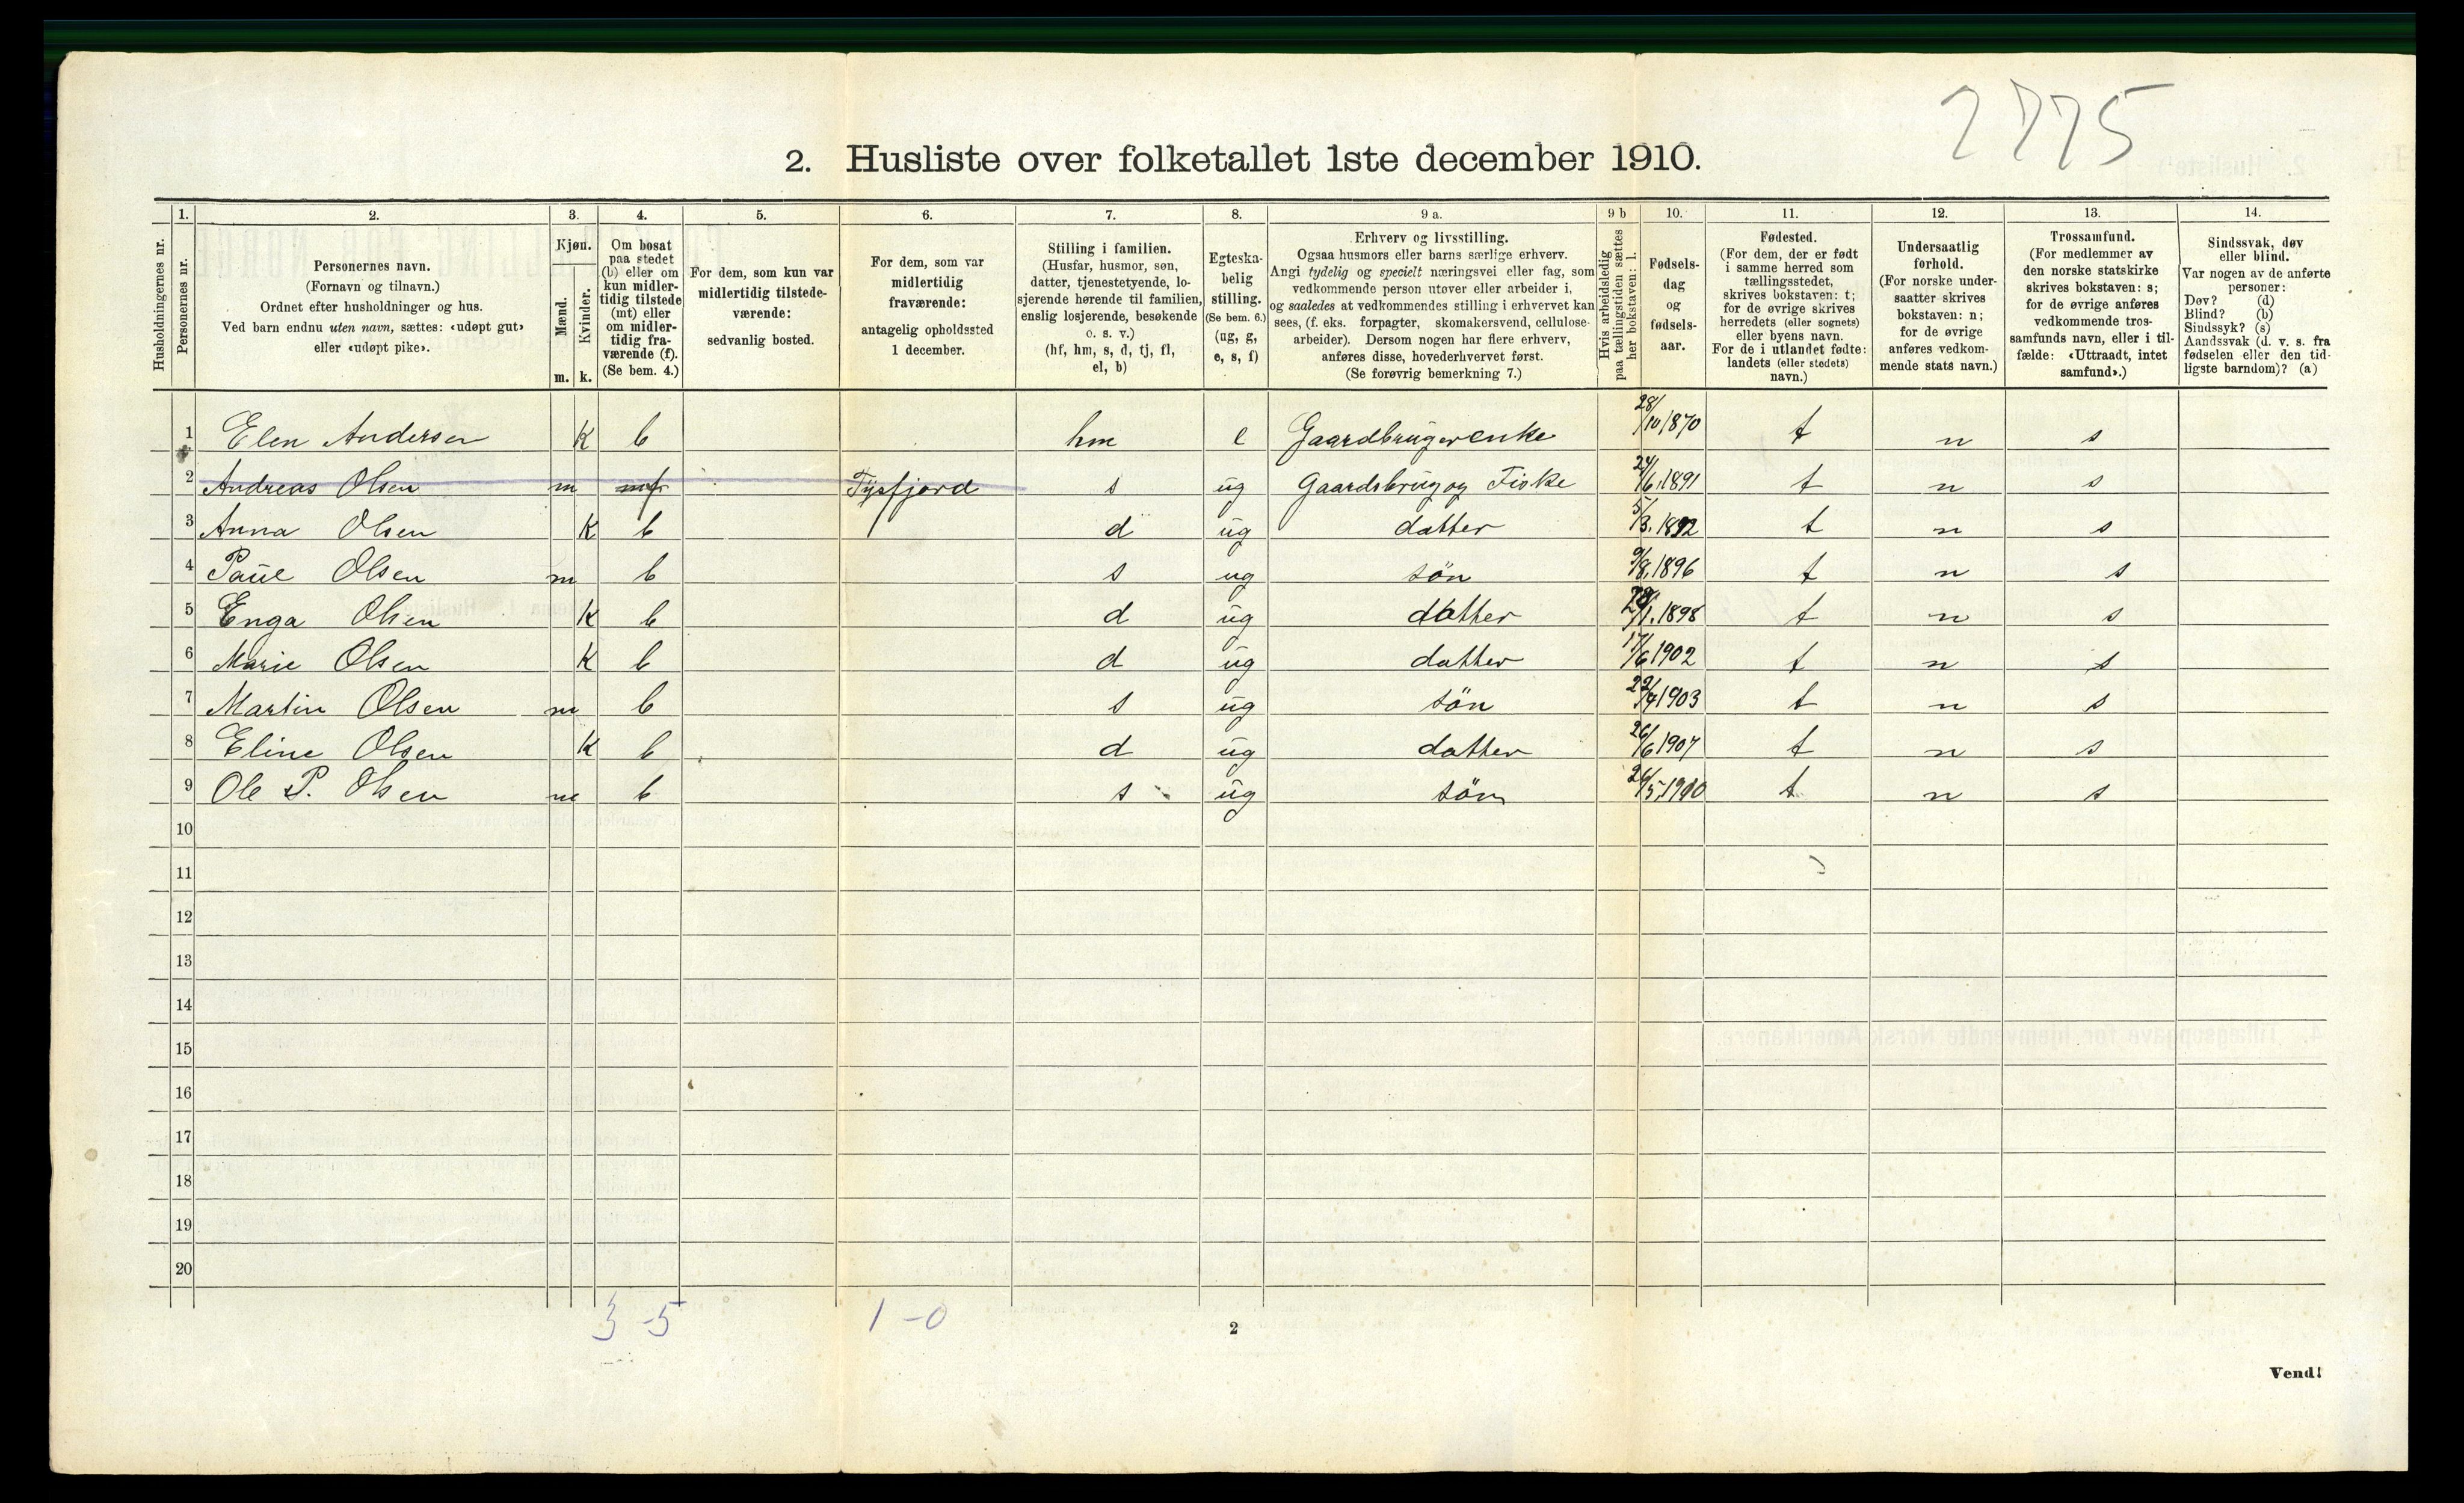 2775
2. Husliste over folketallet 1ste december 1910.
1. 2. 3. 4. 5. 6. 7. 8. 9 a. 9 b 10. 11. 12. 13. 14.
Husholdningernes nr.
Personernes nr.
Personernes navn.
(Fornavn og tilnavn.)
Ordnet efter husholdninger og hus.
Ved barn endnu uten navn, sættes: «udøpt gut»
eller «udøpt pike».
Kjøn.
Mænd.
Kvinder.
m. k.
Om bosat
paa stedet
(b) eller om
kun midler-
tidig tilstede
(mt) eller
om midler-
tidig fra-
værende (f).
(Se bem. 4.)
For dem, som kun var
midlertidig tilstede-
værende:
sedvanlig bosted.
For dem, som var
midlertidig
fraværende:
antagelig opholdssted
1 december.
Stilling i familien.
(Husfar, husmor, søn,
datter, tjenestetyende, lo-
sjerende hørende til familien,
enslig losjerende, besøkende
o. s. v.)
(hf, hm, s, d, tj, fl,
el, b)
Egteska-
belig
stilling.
(Se bem. 6.)
(ug, g,
e, s, f)
Erhverv og livsstilling.
Ogsaa husmors eller barns særlige erhverv.
Angi tydelig og specielt næringsvei eller fag, som
vedkommende person utøver eller arbeider i,
og saaledes at vedkommendes stilling i erhvervet kan
sees, (f. eks. forpagter, skomakersvend, cellulose-
arbeider). Dersom nogen har flere erhverv,
anføres disse, hovederhvervet først.
(Se forøvrig bemerkning 7.)
Hvis arbeidsledig
paa tællingstiden sættes
her bokstaven: l.
Fødsels-
dag
og
fødsels-
aar.
Fødested.
(For dem, der er født
i samme herred som
tællingsstedet,
skrives bokstaven: t;
for de øvrige skrives
herredets (eller sognets)
eller byens navn.
For de i utlandet fødte:
landets (eller stedets)
navn.)
Undersaatlig
forhold.
(For norske under-
saatter skrives
bokstaven: n;
for de øvrige
anføres vedkom-
mende stats navn.)
Trossamfund.
(For medlemmer av
den norske statskirke
skrives bokstaven: s;
for de øvrige anføres
vedkommende tros-
samfunds navn, eller i til-
fælde: «Uttraadt, intet
samfund».)
Sindssvak, døv
eller blind.
Var nogen av de anførte
personer:
Døv? (d)
Blind? (b)
Sindssyk? (s)
Aandssvak (d. v. s. fra
fødselen eller den tid-
ligste barndom)? (a)
1 Elen Andersen K b hm e Gaardbrugerenke 28/10 1870 t n s
2 Andreas Olsen m f Tysfjord s ug Gaardsbrug og Fiske 24/6.1891 t n s
3 Anna Olsen K b d ug datter 5/3.1892 t n s
4 Paul Olsen m b s ug søn 9/8.1896 t n s
5 Enga Olsen K b d ug datter /1.1898 t n s
6 Marie Olsen K b d ug datter 17/6 1902 t n s
7 Martin Olsen m b s ug søn 22/4 1903 t n s
8 Eline Olsen K b d ug datter 26/6 1907 t n s
9 Ole P. Olsen m b s ug søn /5.1910 t n s
10
11
12
13
14
15
16
17
18
19
20
3-5 1-0
2
Vend!